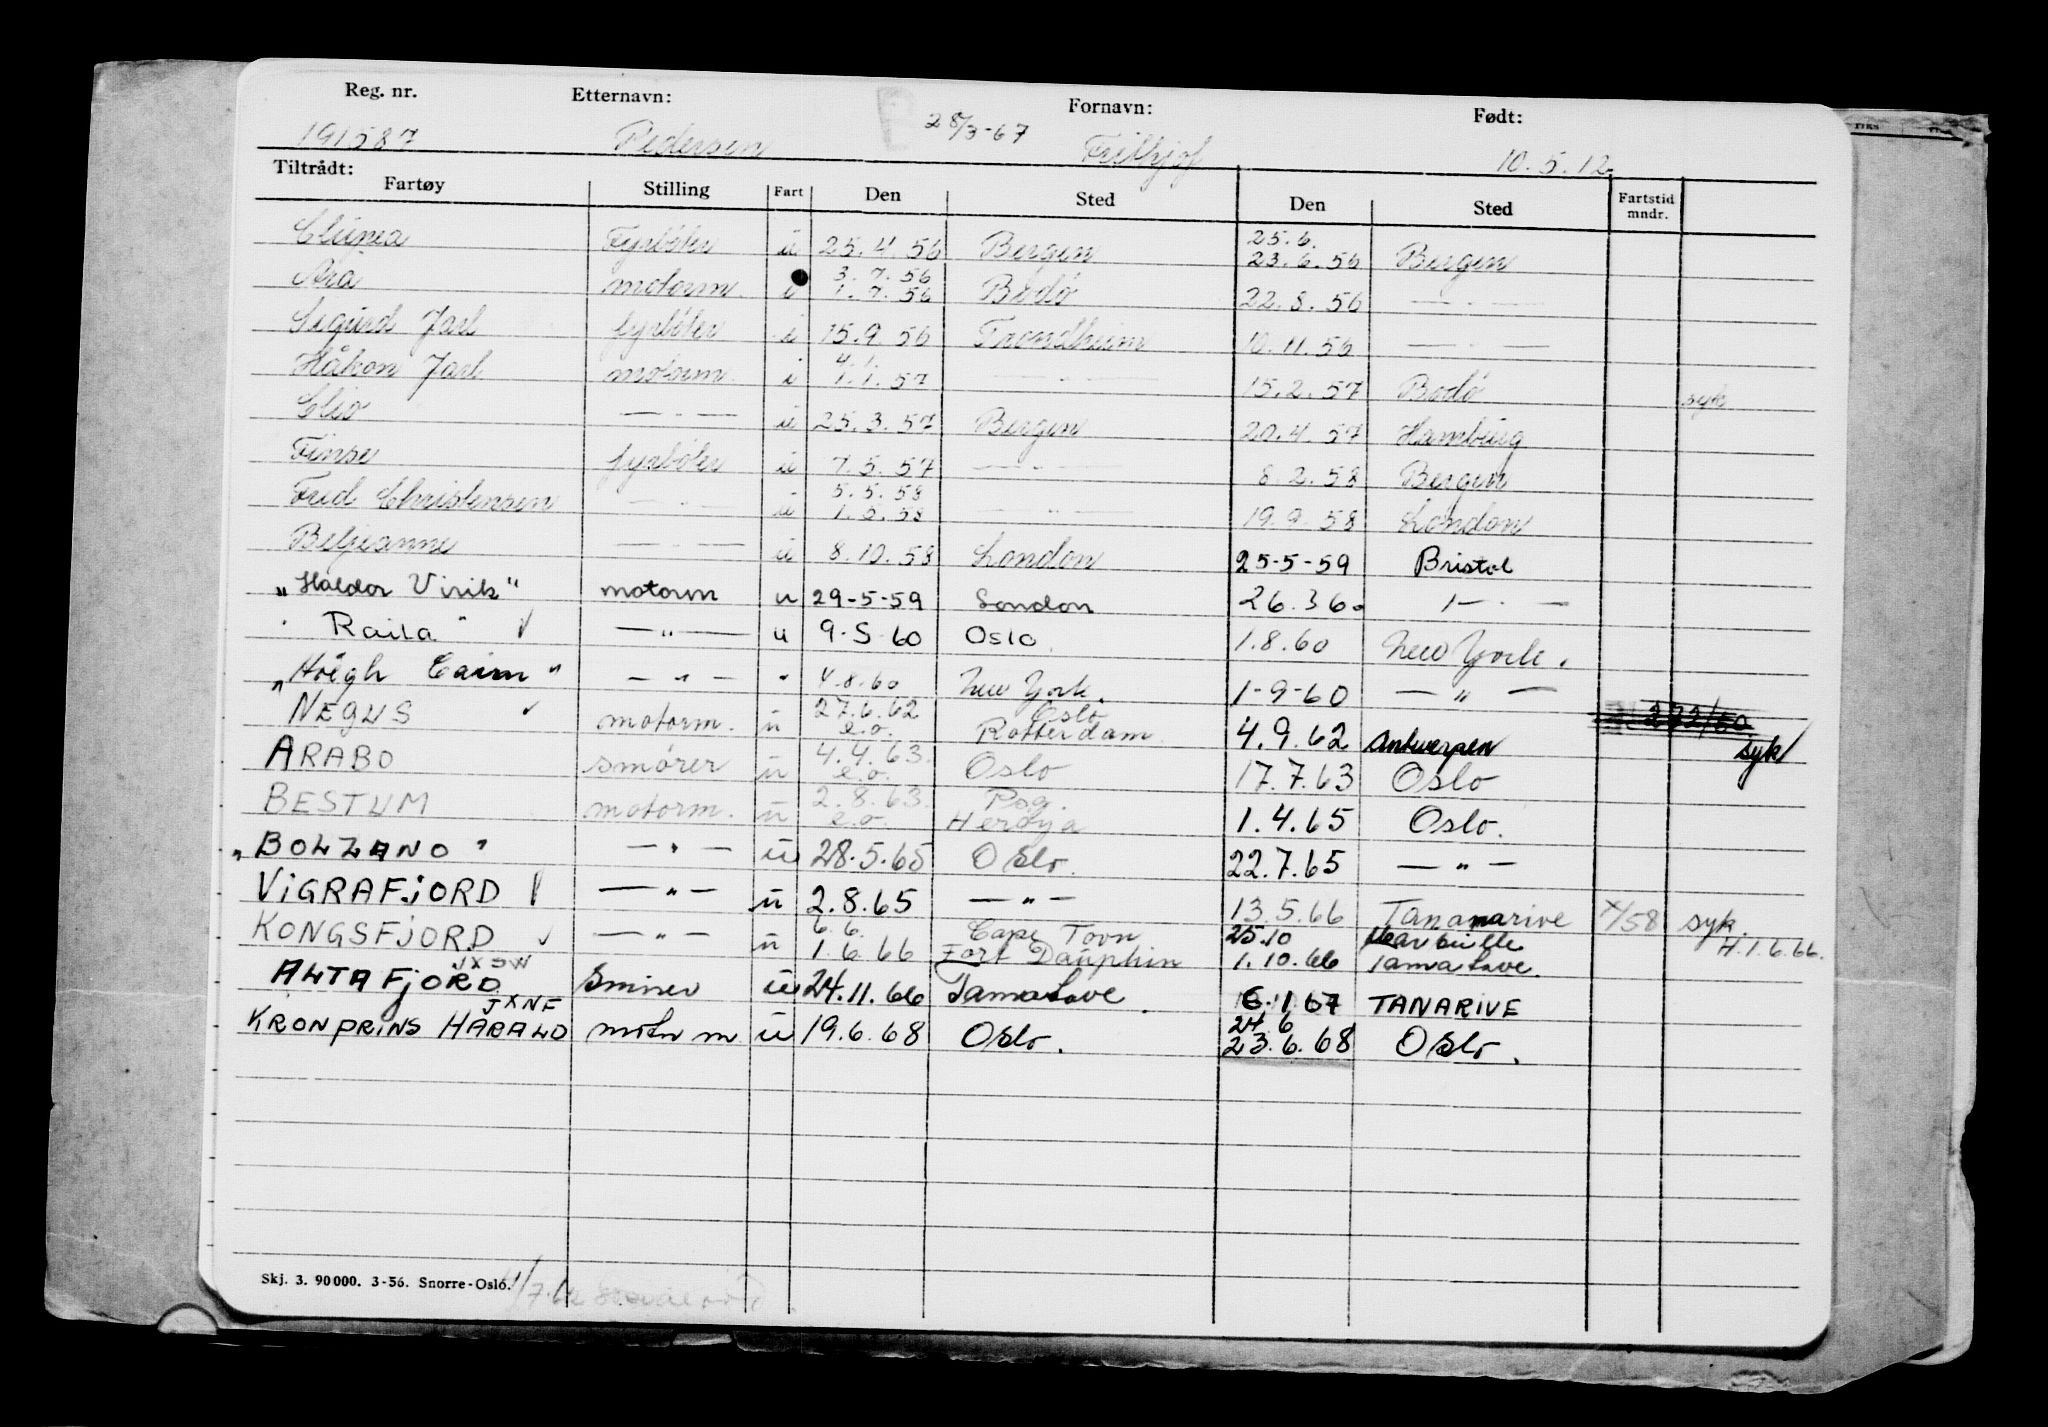 Reg. nr. Etternavn: Fornavn: Født:
191587 Pedersen 28/3-67 Frithjof 10.5.12
Tiltrådt:
Fartøy Stilling Fart Den Sted Den Sted Fartstid mndr.
25.6.
Clypea Fyrbøter u 25.4.56 Bergen 23.6.56 Bergen
3.7.56
Aria motorm. i 1.7.56 Bodø 22.8.56 — " —
Sigurd Jarl fyrbøter i 15.9.56 Trondheim 10.11.56 — " —
4.1.
Håkon Jarl motorm. i 1.1.57 — " — 15.2.57 Bodø syk
Clio — " — u 25.3.57 Bergen 20.4.57 Hamburg
Finse fyrbøter u 7.5.57 — " — 8.2.58 Bergen
5.5.58
Fred Christensen — " — u 1.5.58 — " — 19.9.58 London
Beljeanne — " — u 8.10.58 London 25-5-59 Bristol
"Haldor Virik" motorm u 29-5-59 London 26.3.60 — " —
"Raila" — " — u 9-5-60 Oslo 1.8.60 New York.
"Höegh Cairn" — " — " 4.8.60 New York. 1-9-60 — " —
27.6.62 Oslo
NEGUS motorm. u e.o. Rotterdam 4.9.62 Antwerpen syk
4.4.63.
ARABO smører u e.o. Oslo 17.7.63 Oslo
2.8.63. Psg.
BESTUM motorm. u e.o. Herøya 1.4.65 Oslo.
"BOLZANO" — " — u 28.5.65 Oslo. 22.7.65 — " —
VIGRAFJORD — " — u 2.8.65 — " — 13.5.66 Tananarive x/58 syk.
6.6. Cape Town 25.10
KONGSFJORD — " — u 1.6.66 Fort Dauphin 1.10.66 Tamatave. H.1.6.66.
JXSW
ALTAFJORD Smører u 24.11.66 Tamatave. 6.1.67 TANARIVE
JXNF 24.6
KRONPRINS HARALD motor m u 19.6.68 Oslo. 23.6.68 Oslo.
Skj. 3. 90000. 3-56. Snorre-Oslo.